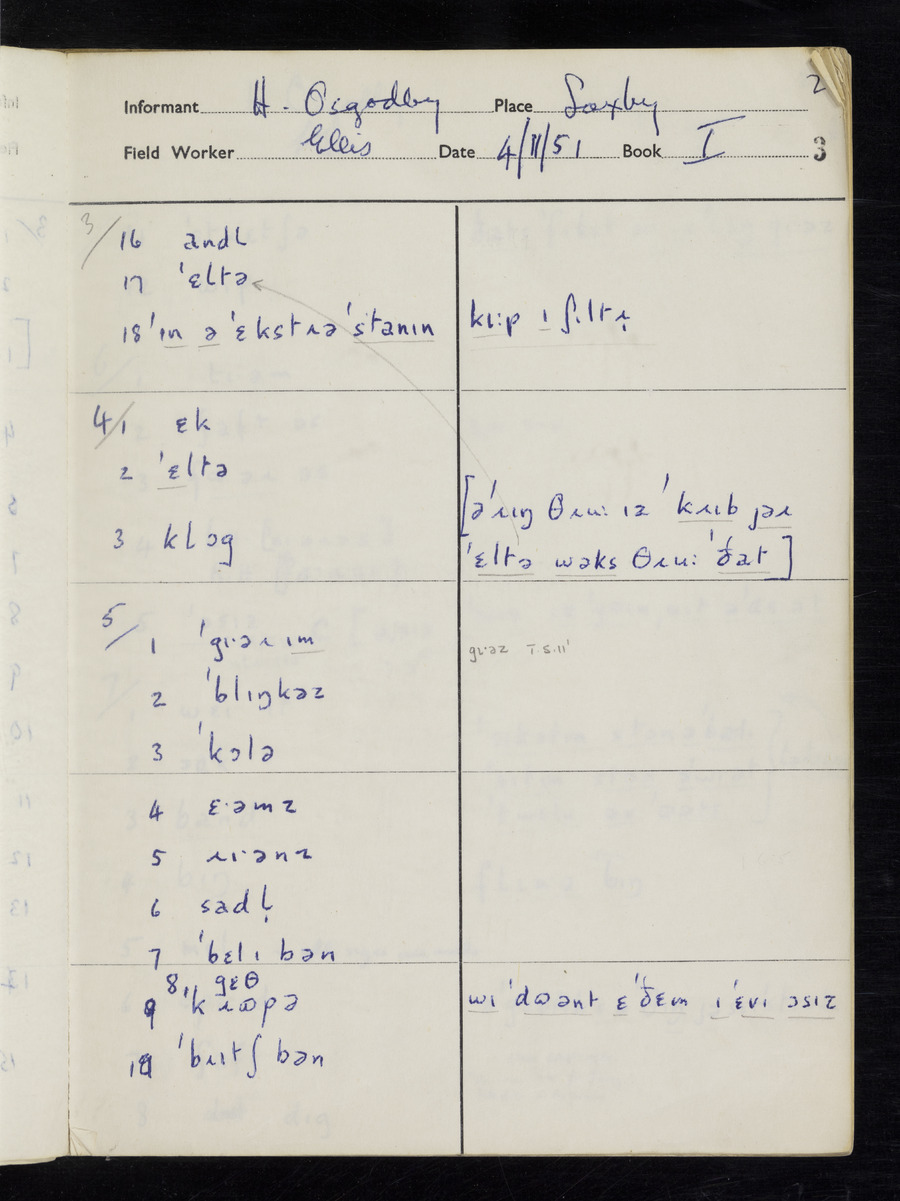 2
Informant H. Osgodby Place Saxby
Field Worker Ellis Date 4/11/51 Book I 3
3/ 16 andl
17 ˈɛltə
18 ˈɪn ə ˈɛkstɹə ˈstanɪn
klɪ:p ɪ ʃɪltɹ̣
4/ 1 ɛk
2 ˈɛltə
3 klɔg
[ə ˈɹɪŋ θɹu: ɪz ˈkɹɪb jəɹ
ˈɛltə wəks θɹu: ˈðat]
5/ 1 ˈgɪ·əɹ ɪm
gɪ·əz I.5.11
2 ˈblɪŋkəz
3 ˈkɔlə
4 ɛ·əmz
5 ɹɪ·ənz
6 sadl̩
7 ˈbɛlɪ bən
8 gɛθ
9 ˈkɹʊpə
wɪ ˈdʊənt ɛ ˈðɛm ɪ ˈɛvɪ ɔsɪz
10 ˈbɹɪtʃ bən